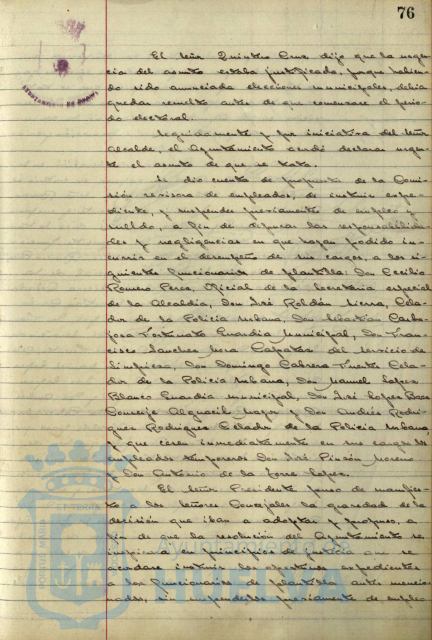 76
El Señor Quintero Cruz dijo que la urgen
cia del asunto estaba justificada, porque habien
do sido anunciada elecciones municipales, debia
quedar resuelto antes de que comenzase el perio
do electoral.
Seguidamente y por iniciativa del Señor
Alcalde, el Ayuntamiento acordó declarar urgen
te el asunto de que se trata.
Se dio cuenta de propuesta de la Comi
sión revisora de empleados, de instruir expe
diente, y suspender previamente de empleo y
sueldo, a fin de depurar las responsabilida
des y negligencias en que hayan podido in
currir en el desempeño de sus cargos, a los si
guientes funcionarios de plantilla: Don Cecilio
Romero Perez, Oficial de la Secretaria especial
de la Alcaldia, Don José Roldán Sierra, Cela
dor de la Policia Urbana, Don Sebastian Carba
josa Fortunato Guardia Municipal, Don Fran
cisco Sanchez Mora Capataz del servicio de
limpieza, Don Domingo Cabrera Fuentes Cela
dor de la Policia Urbana, Don Manuel Lopez
Blanco Guardia municipal, Don José Lopez
Conserje Alguacil Mayor y Don Andrés Rodri
guez Rodriguez Celador de la Policia Urbana,
y que cesen inmediatamente en sus cargos los
empleados temporeros Don José Pinzón Moreno
y Don Antonio de la Torre Lopez.
El Señor Presidente puso de manifies
to a los Señores Concejales la gravedad de la
decisión que iban a adoptar y propuso, a
fin de que la resolución del Ayuntamiento se
inspirara en principios de justicia que se
acordase instruir los oportunos expedientes
a los funcionarios de plantilla antes mencio
nados, sin suspenderlos previamente de empleo
Ayuntamiento
de Huelva